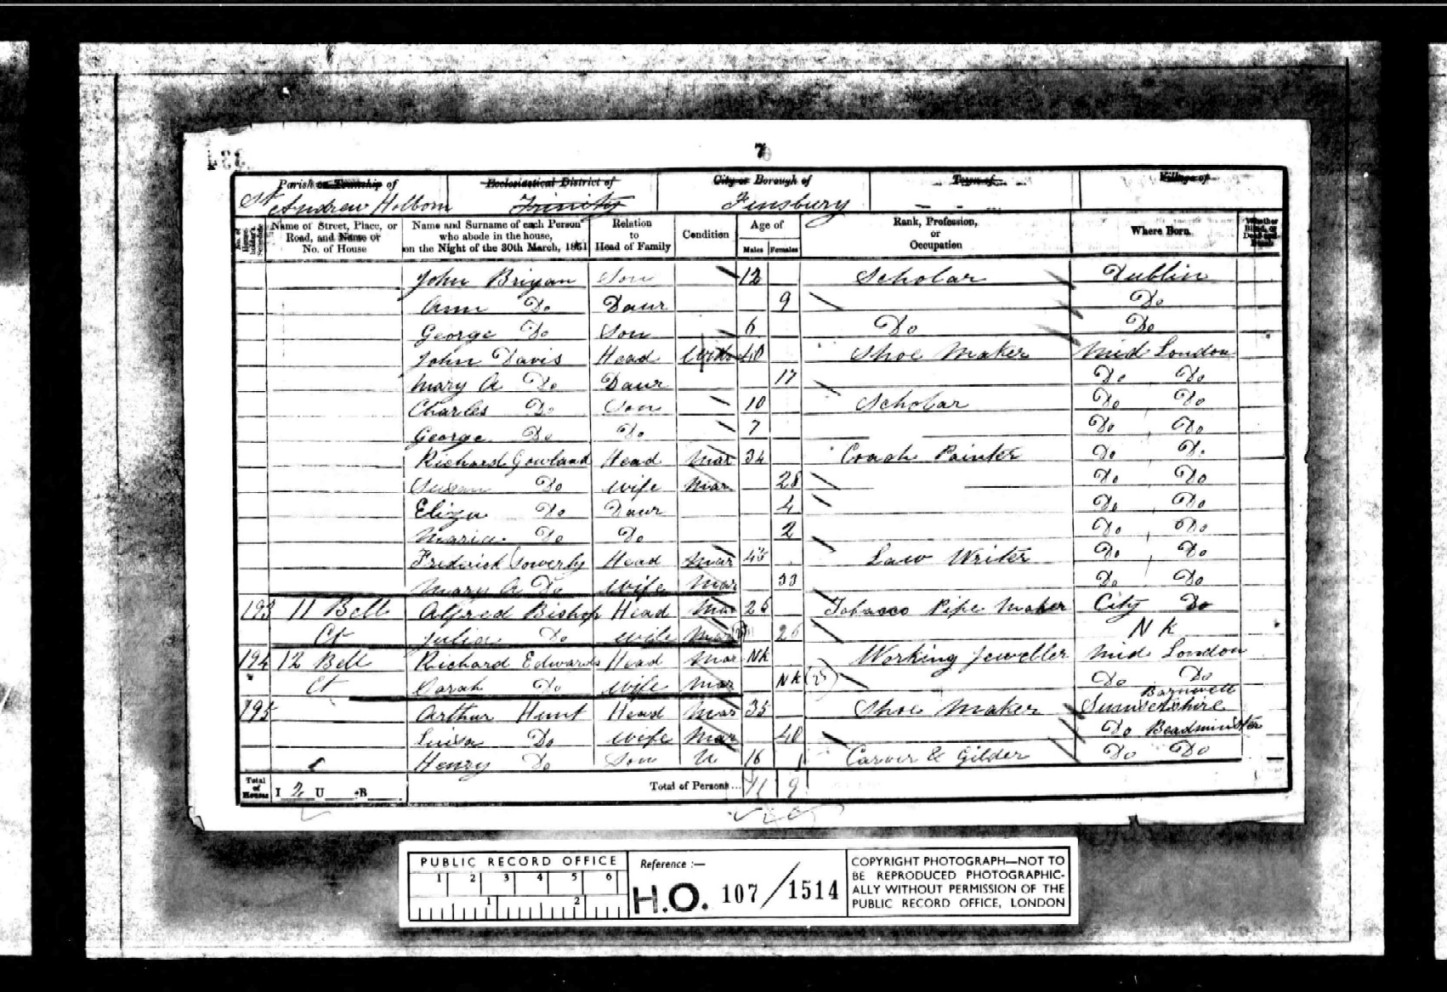 7
Parish or Township of
Ecclesiastical District of
City or Borough of
Town of
Village of
St Andrew Holborn
Trinity
Finsbury
Name of Street, Place, or Road, and Name or No. of House
Name and Surname of each Person who abode in the house, on the Night of the 30th March, 1851
Relation to Head of Family
Condition
Age of
Males Females
Rank, Profession, or Occupation
Where Born
John Bryan Son 12 Scholar Dublin
Ann Do Daur 9 Do
George Do Son 6 Do Do
John Davis Head 40 Shoe Maker Mid London
Mary A Do Daur 17 Do Do
Charles Do Son 10 Scholar Do Do
George Do Do 7 Do Do
Richard Gowland Head Mar 34 Coach Painter Do Do
Susan Do Wife Mar 28 Do Do
Eliza Do Daur 4 Do Do
Maria Do Do 2 Do Do
Frederick Sowerby Head Mar 45 Law Writer Do Do
Mary A Do Wife Mar 33 Do Do
193 11 Bell Alfred Bishop Head Mar 26 Tobacco Pipe Maker City Do
Ct Julia Do Wife Mar 26 N K
194 12 Bell Richard Edwards Head Mar NK Working Jeweller Mid London
Ct Sarah Do Wife Mar NK Do Do
195 Arthur Hunt Head Mar 35 Shoe Maker Sumersetshire
Do Wife Mar 40 Do Beadminster
Henry Do Son U 16 Carver & Gilder Do Do
Total of Houses I 2 U B Total of Persons... 11 9
PUBLIC RECORD OFFICE
1 2 3 4 5 6
1 2
Reference :—
H.O. 107/1514
COPYRIGHT PHOTOGRAPH—NOT TO
BE REPRODUCED PHOTOGRAPHIC-
ALLY WITHOUT PERMISSION OF THE
PUBLIC RECORD OFFICE, LONDON